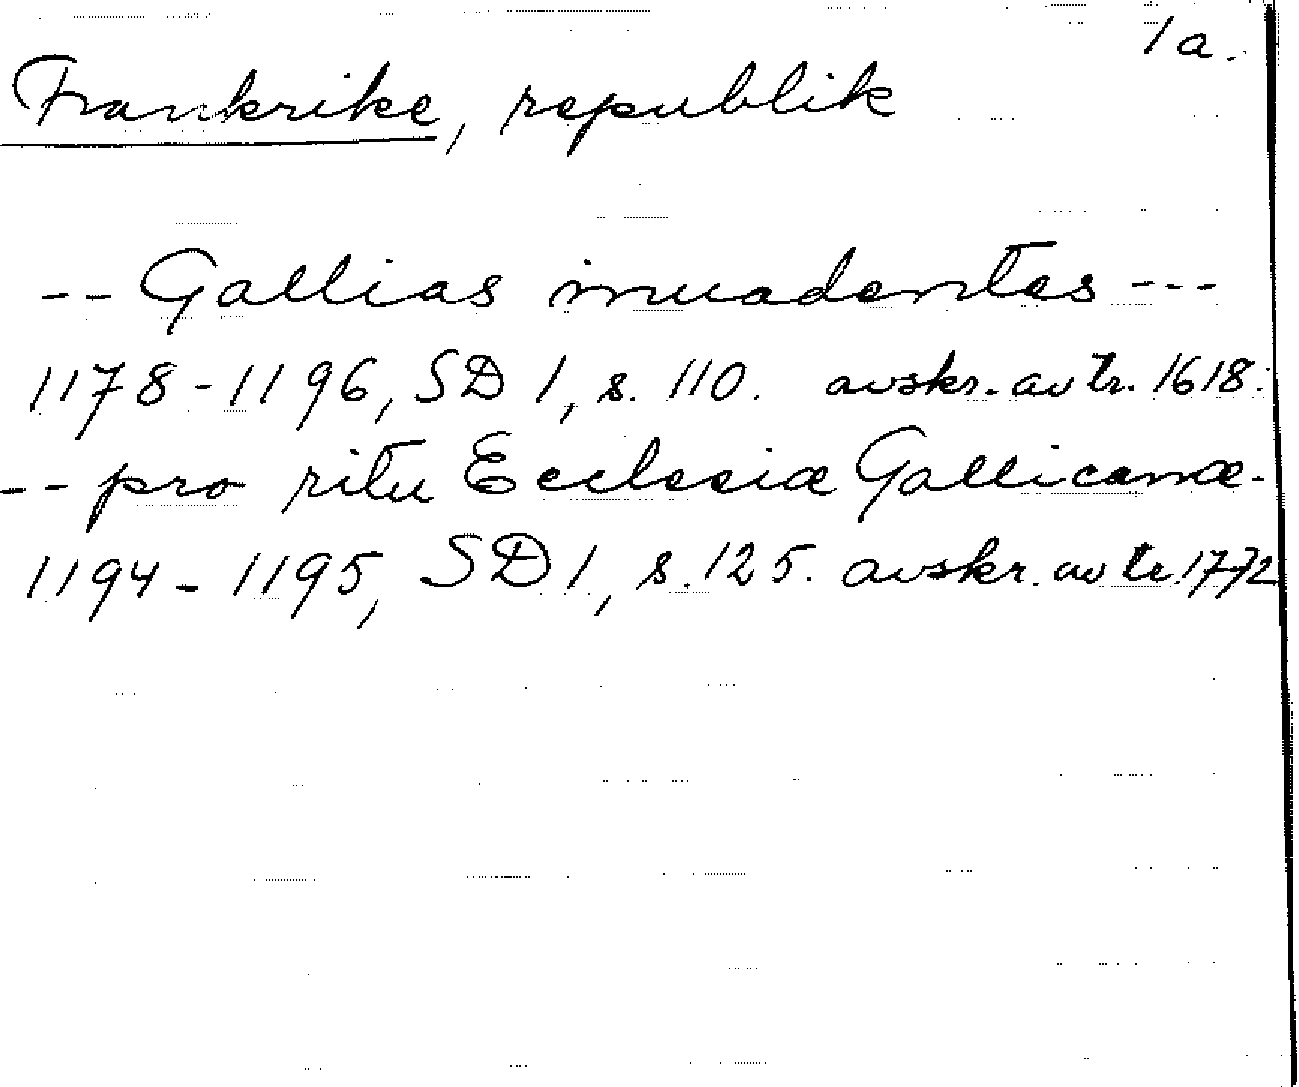 1a.
Frankrike, republik
-- Gallias inuadentes ---
1178-1196, SD 1, s. 110. avskr. av tr. 1618.
-- pro ritu Ecclesiæ Gallicanæ-
1194-1195, SD 1, s. 125. avskr. av tr. 1772